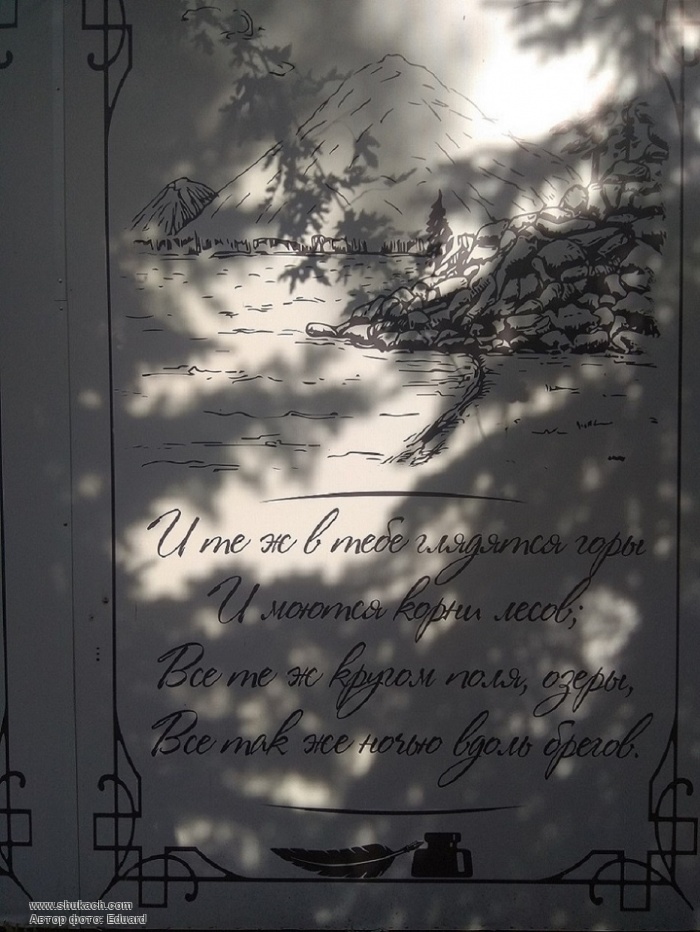 И те ж в тебе глядятся горы
И моются корни лесов;
Все те ж кругом поля, озеры,
Все так же ночью вдоль брегов.
www.shukach.com
Автор фото: Eduard